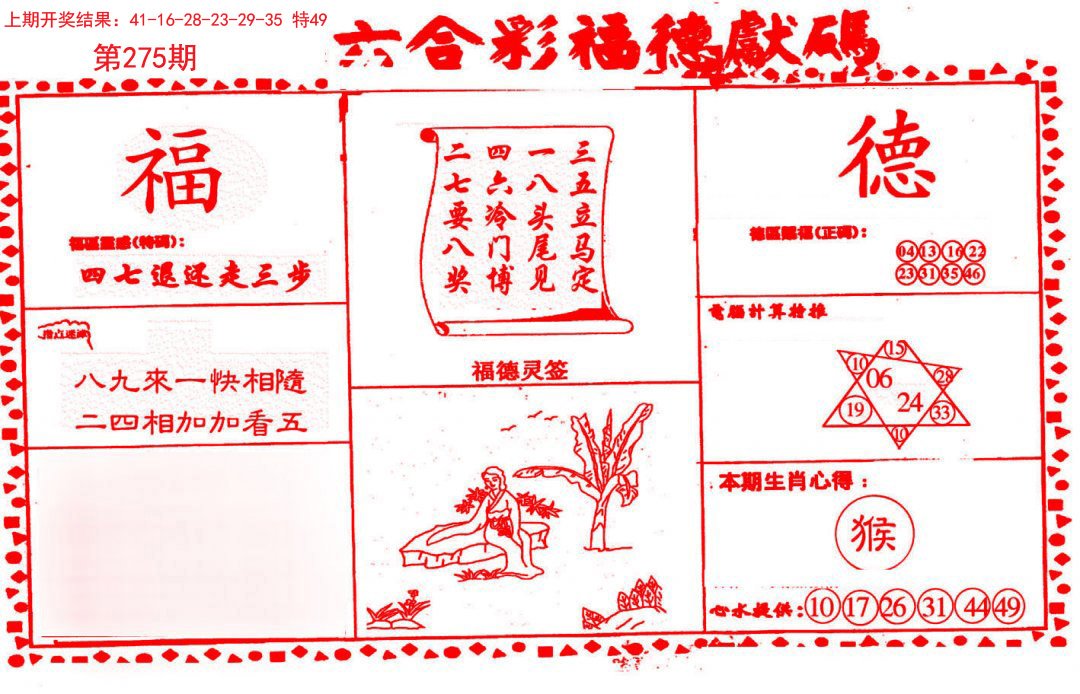 上期开奖结果：41-16-28-23-29-35 特49
第275期
六合彩福德獻碼
福
福區靈感(特碼)：
四七退还走三步
指点迷津
八九來一快相隨
二四相加加看五
三五立马定
一八头尾见
四六冷门博
二七要八奖
福德灵签
德
德區賜福(正碼)：
04 13 16 22
23 31 35 46
電腦計算特推
15
10 28
06
24
19 33
10
本期生肖心得：
猴
心水提供：10 17 26 31 44 49